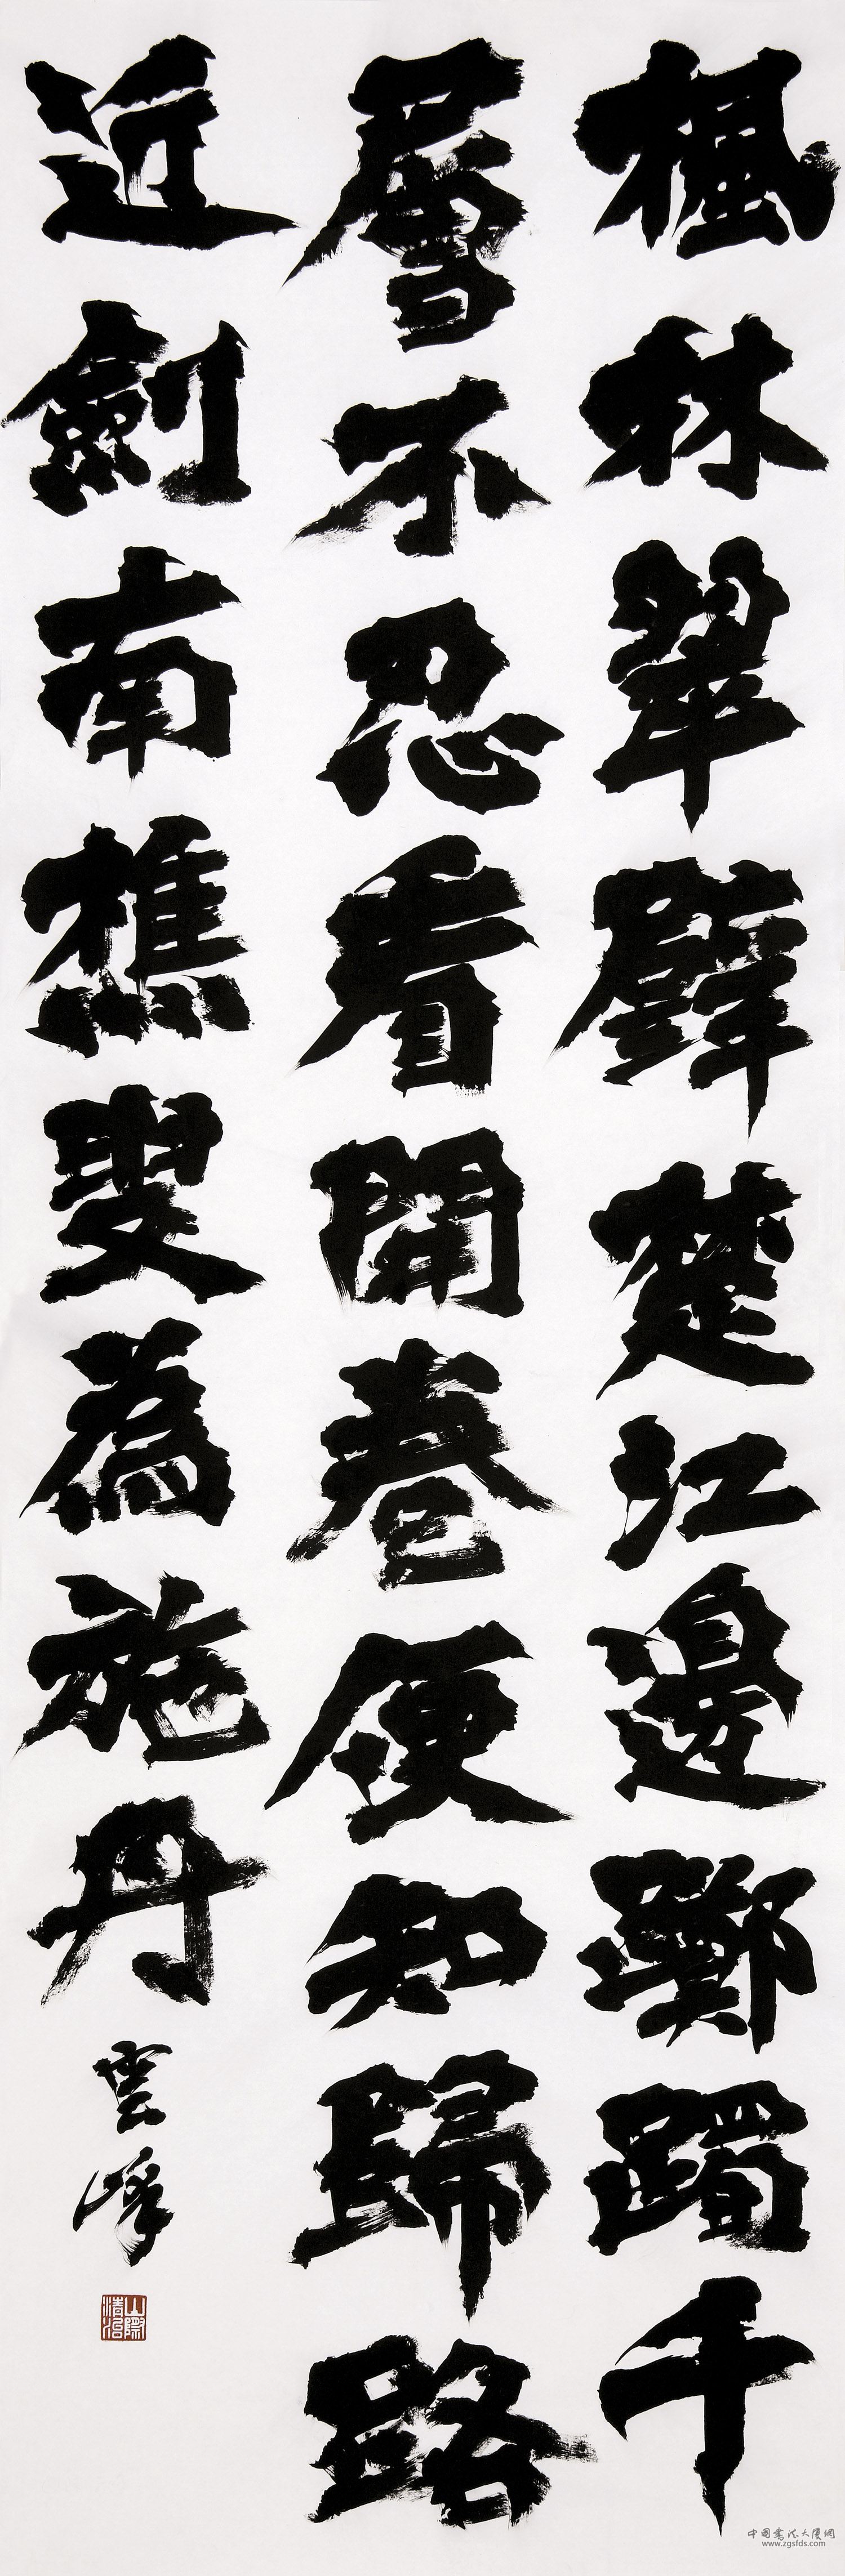 楓林翠壁楚江邊躑躅千
層不忍看開卷便知歸路
近劍南樵叟為施丹
雲峰
中國書法大廈網
www.zgsfds.com